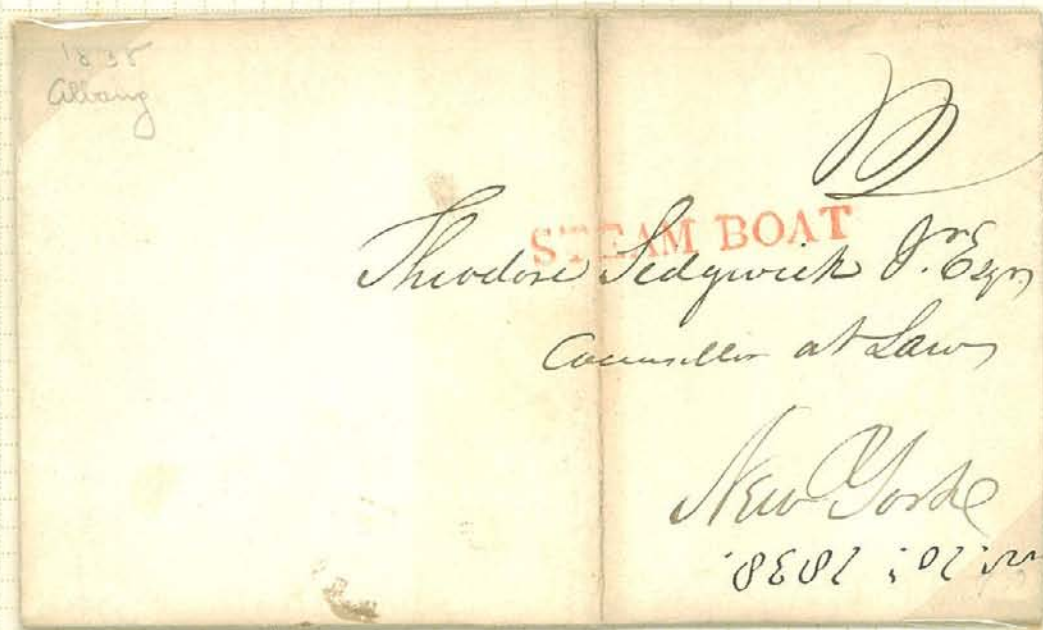 Albany
STEAM BOAT
Theodore Sedgwick Jr. Esqr
Counsellor at Law
New York
10: 1838.